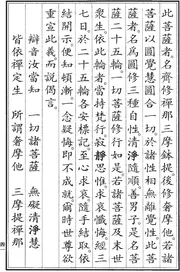 此菩薩者名齊修禪那三摩鉢提後修奢摩他若諸
菩薩以圓覺慧圓合一切於諸性相無離覺性此菩
薩者名爲圓修三種自性清淨隨順善男子是名菩
薩二十五輪一切菩薩修行如是若諸菩薩及末世
眾生依此輪者當持梵行寂靜思惟求哀懺悔經三
七日於二十五輪各安標記至心求哀隨手結取依
結開示便知頓漸一念疑悔即不成就爾時世尊欲
重宣此義而說偈言
辯音汝當知　一切諸菩薩　無礙清淨慧
皆依禪定生　所謂奢摩他　三摩提禪那